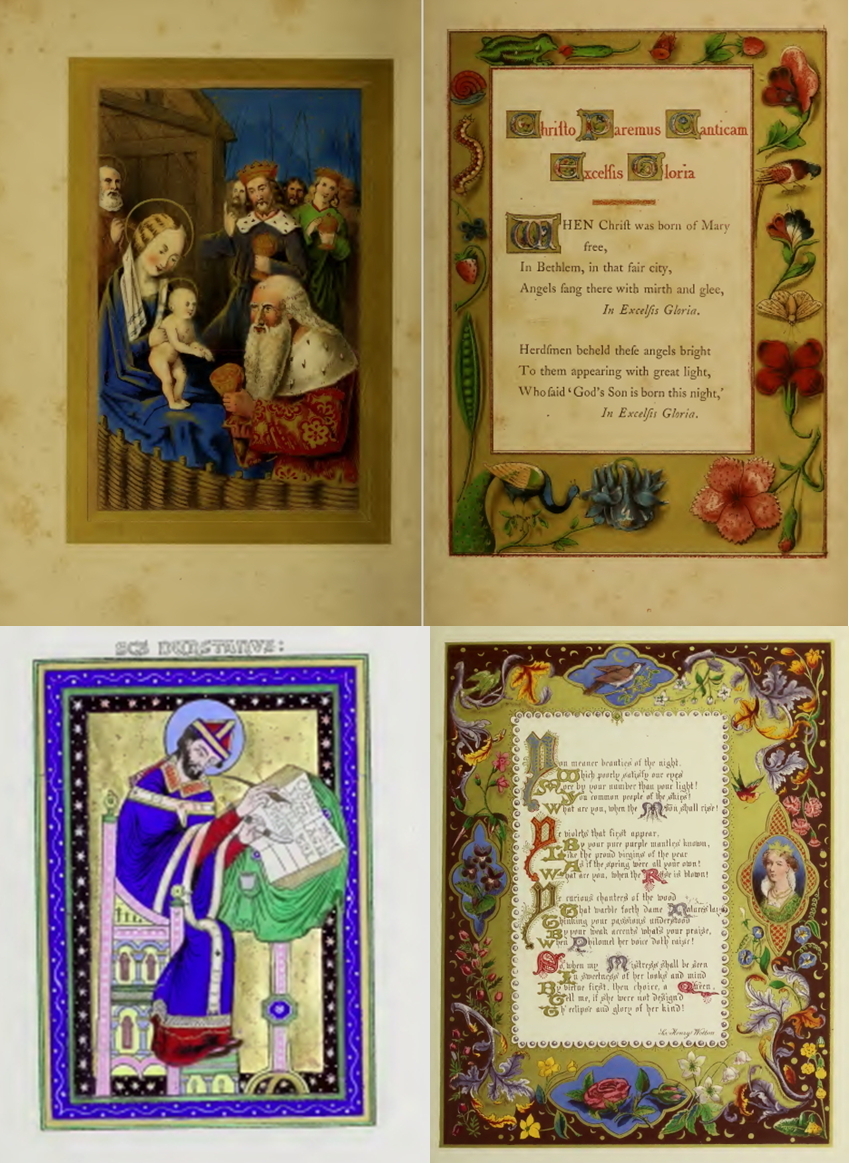 Chriſto Paremus Canticam
Excelſis Gloria
WHEN Chriſt was born of Mary
free,
In Bethlem, in that fair city,
Angels ſang there with mirth and glee,
In Excelſis Gloria.
Herdſmen beheld theſe angels bright
To them appearing with great light,
Who ſaid 'God's Son is born this night,'
In Excelſis Gloria.
SCS DUNSTANVS:
You meaner beauties of the night.
Which poorly satisfy our eyes
More by your number than your light!
You common people of the skies!
What are you, when the Moon shall rise!
Ye violets that first appear,
By your pure purple mantles known,
Like the proud virgins of the year
As if the spring were all your own!
What are you, when the Rose is blown!
Ye curious chanters of the wood
That warble forth dame Natures lays
Thinking your passions understood
By your weak accents what's your praise,
When Philomel her voice doth raise!
So, when my Mistress shall be seen
In sweetness of her looks and mind
By virtue first, then choice, a Queen,
Tell me, if she were not design'd
Th' eclipse and glory of her kind!
Sir Henry Wotton